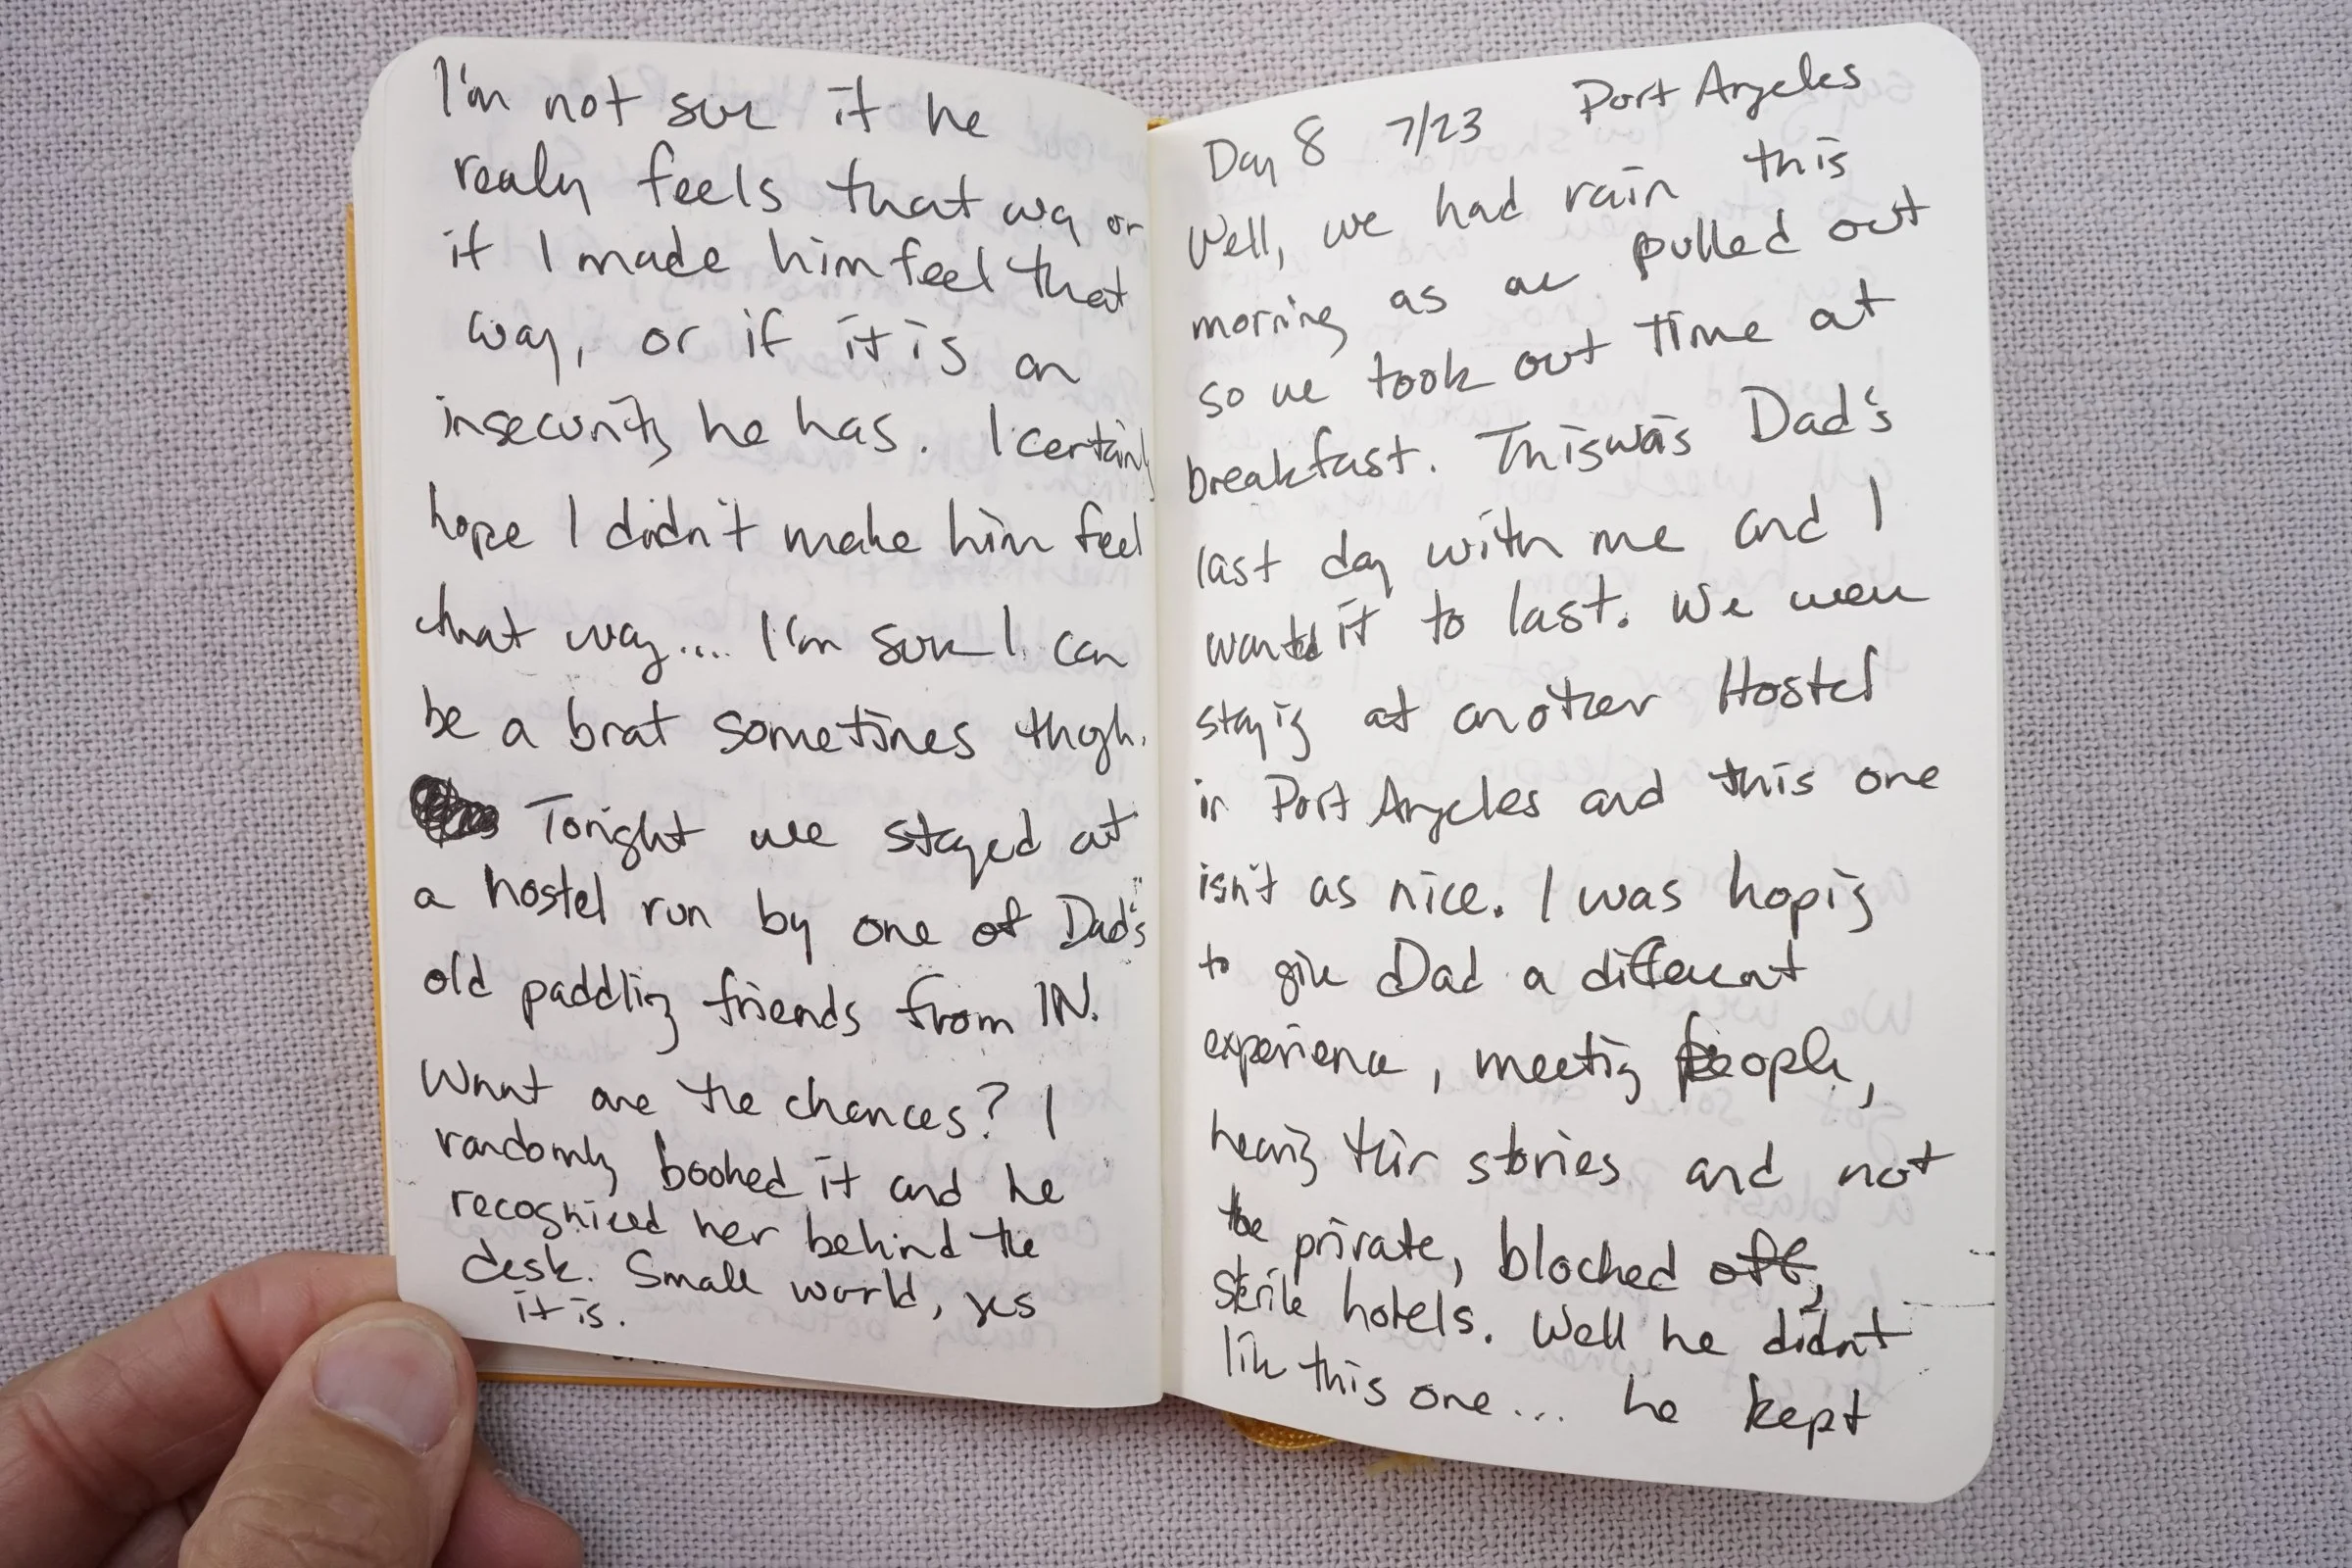 I'm not sure if he
really feels that way or
if I made him feel that
way, or if it is an
insecurity he has. I certainly
hope I didn't make him feel
that way.... I'm sure I can
be a brat sometimes thogh.
Tonight we stayed at
a hostel run by one of Dad's
old paddling friends from IN.
What are the chances? I
randomly booked it and he
recognized her behind the
desk. Small world, yes
it is.
Day 8 7/23 Port Angeles
Well, we had rain this
morning as we pulled out
so we took out time at
breakfast. This was Dad's
last day with me and I
wanted it to last. We were
staying at another Hostel
in Port Angeles and this one
isn't as nice. I was hoping
to give Dad a different
experience, meeting people,
hearing their stories and not
the private, blocked off,
sterile hotels. Well he didn't
like this one... he kept